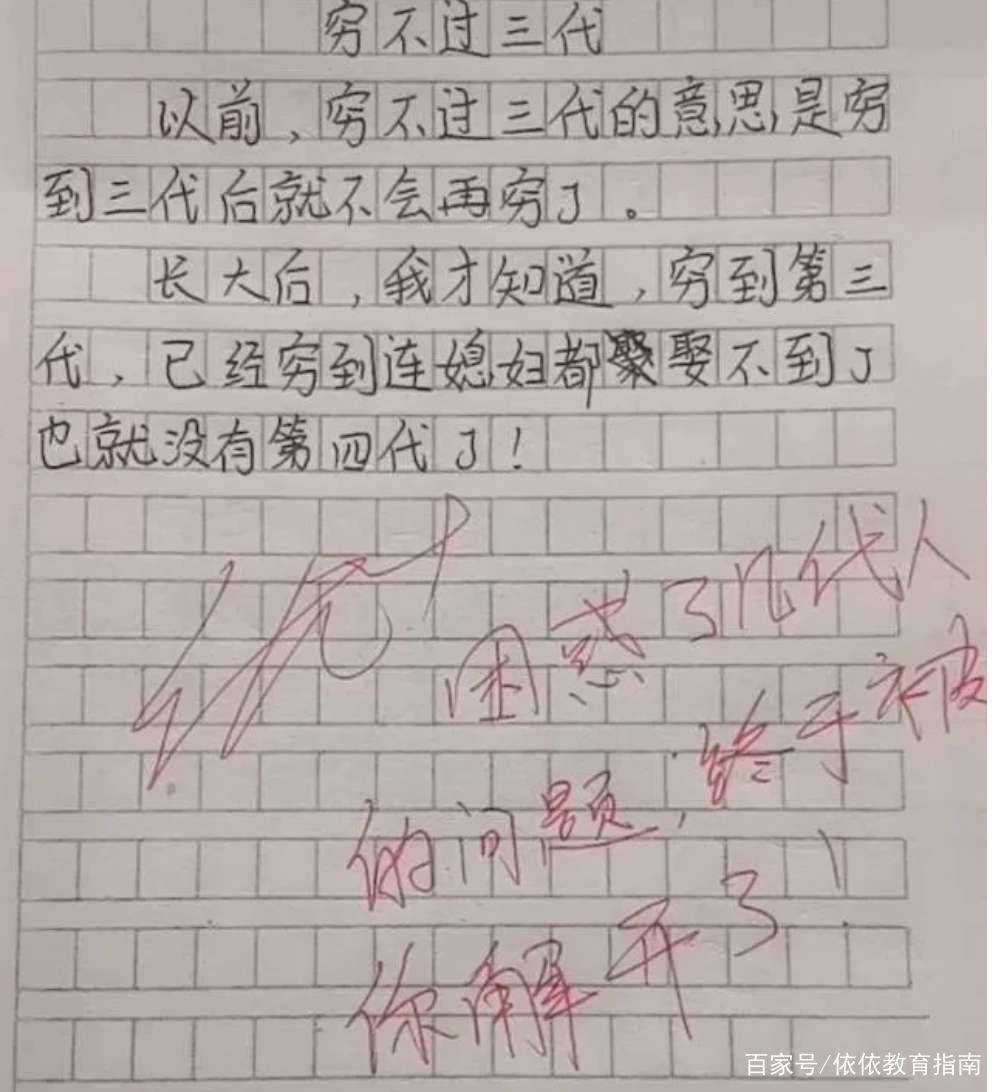 穷不过三代
以前，穷不过三代的意思是穷
到三代后就不会再穷了。
长大后，我才知道，穷到第三
代，已经穷到连媳妇都娶不到了
也就没有第四代了！
优+
困惑了几代人
的问题，终于被
你解开了！
百家号/依依教育指南